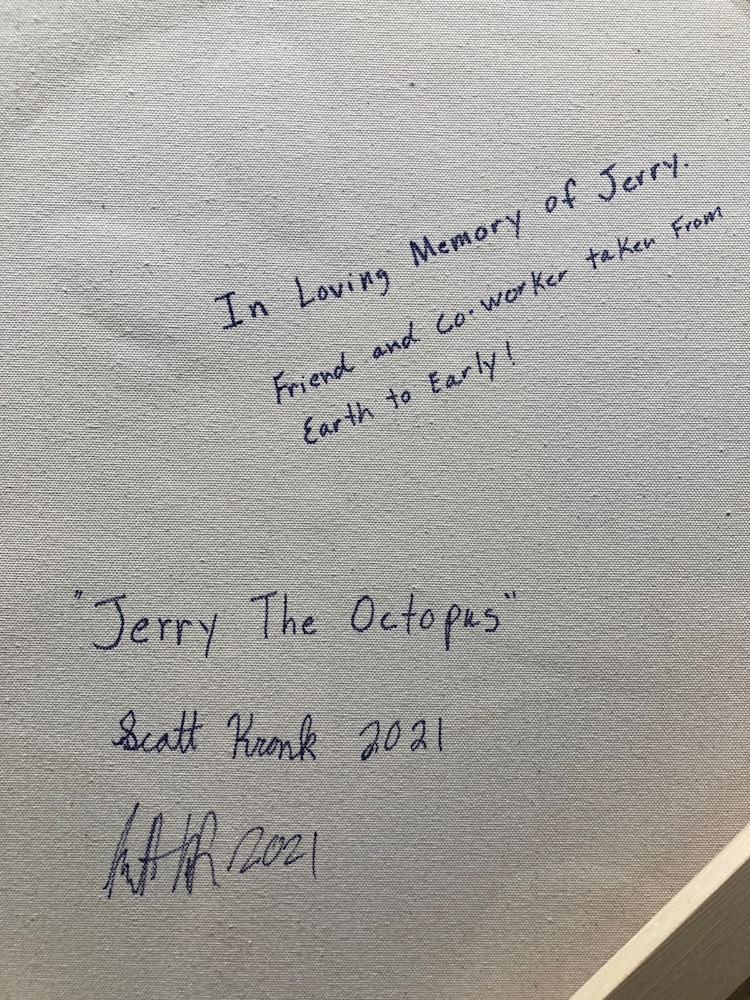 In Loving Memory of Jerry.
Friend and Co-worker taken From
Earth to Early!
"Jerry The Octopus"
Scott Kronk 2021
2021